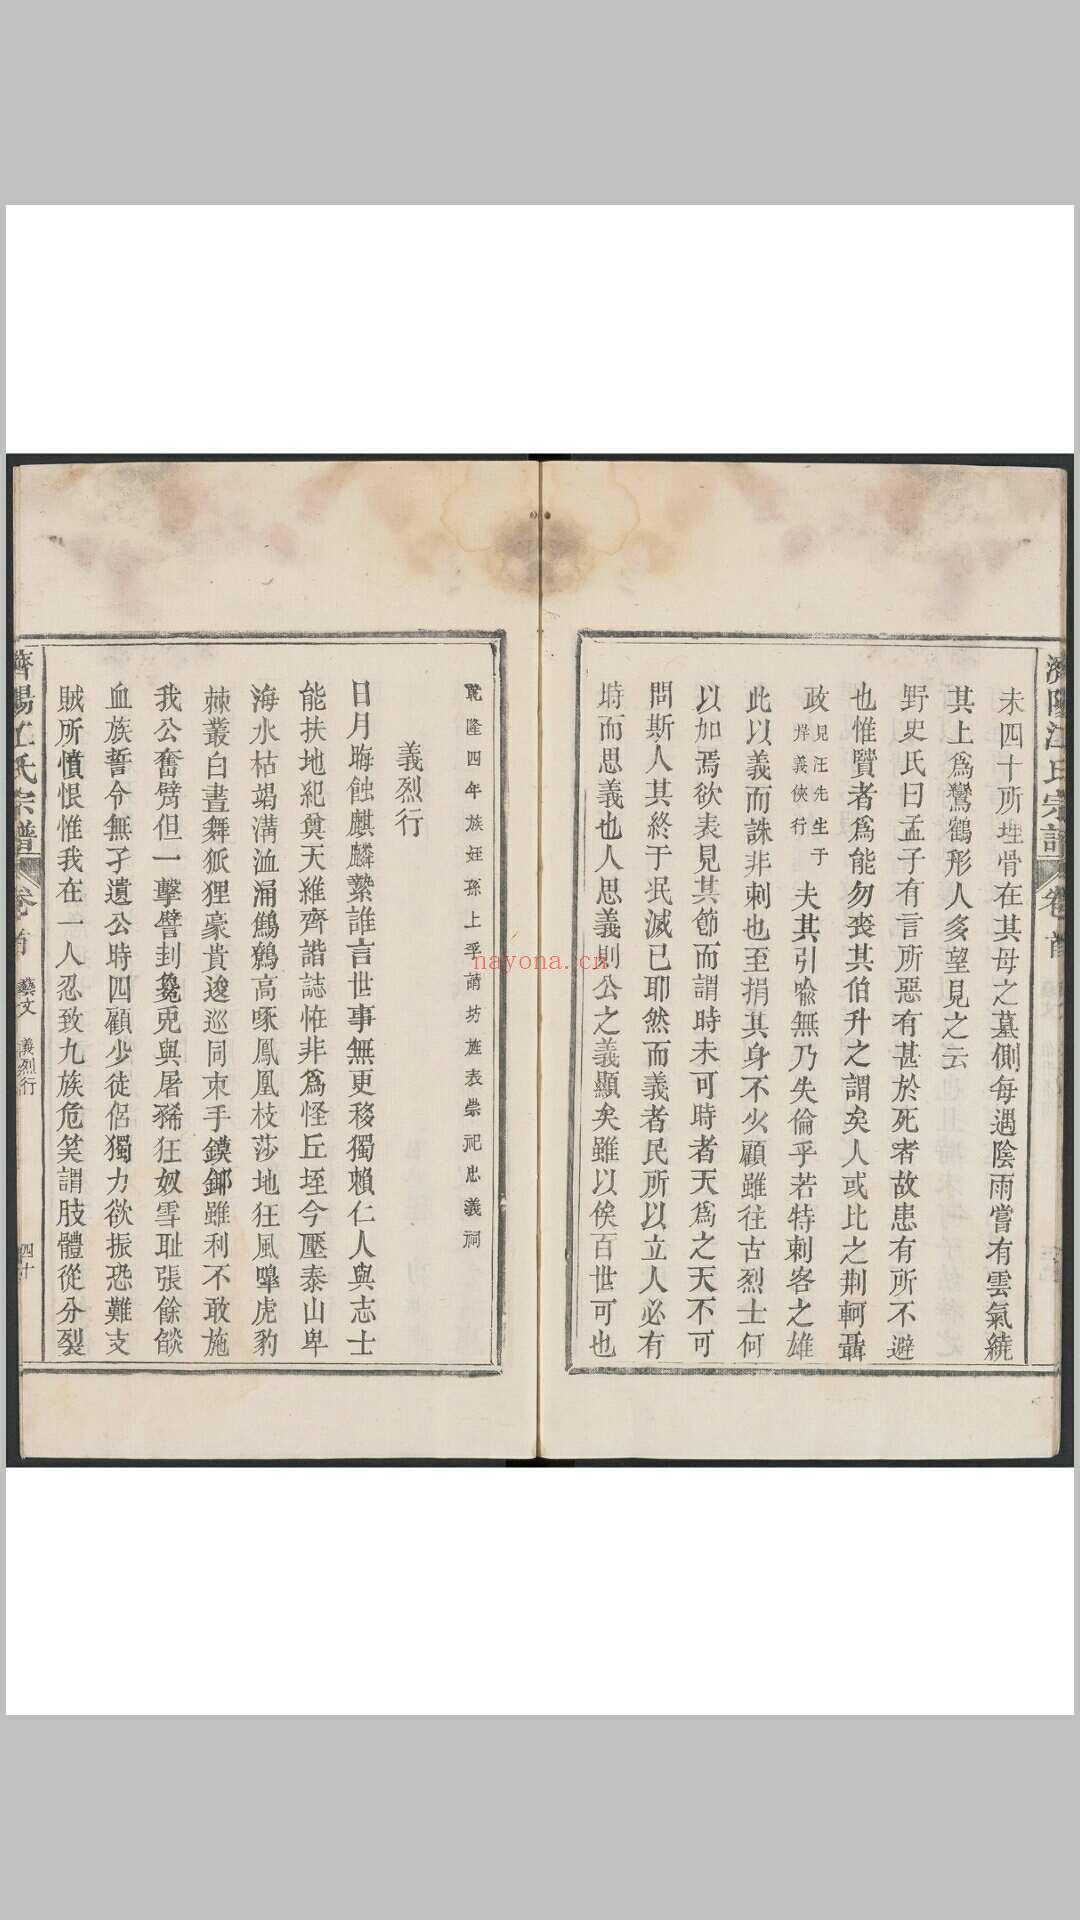 濟陽江氏宗譜 卷首
未四十所埋骨在其母之墓側每遇陰雨嘗有雲氣繞
其上爲鸞鶴形人多望見之云
野史氏曰孟子有言所惡有甚於死者故患有所不避
也惟賢者爲能勿喪其伯升之謂矣人或比之荆軻聶
政見汪先生于烨義俠行夫其引喻無乃失倫乎若特刺客之雄
此以義而誅非刺也至捐其身不少顧雖往古烈士何
以加焉欲表見其節而謂時未可時者天爲之天不可
問斯人其終于泯滅已耶然而義者民所以立人必有
時而思義也人思義則公之義顯矣雖以俟百世可也
乾隆四年族姪孫上孚請坊旌表崇祀忠義祠
義烈行
日月晦蝕麒麟縶誰言世事無更移獨賴仁人與志士
能扶地紀奠天維齊諧誌恠非爲怪丘垤今壓泰山卑
海水枯竭溝洫涌鷦鷯高啄鳳凰枝莎地狂風嘷虎豹
棘叢白晝舞狐狸豪貴逡巡同束手鏌鋣雖利不敢施
我公奮劈但一擊譬封毚兎與屠豨狂奴雪耻張餘燄
血族誓令無孑遺公時四顧少徒侶獨力欲振恐難支
賊所憤恨惟我在一人忍致九族危笑謂肢體從分裂
濟陽江氏宗譜 卷首 藝文 義烈行 四十
nayona.cn